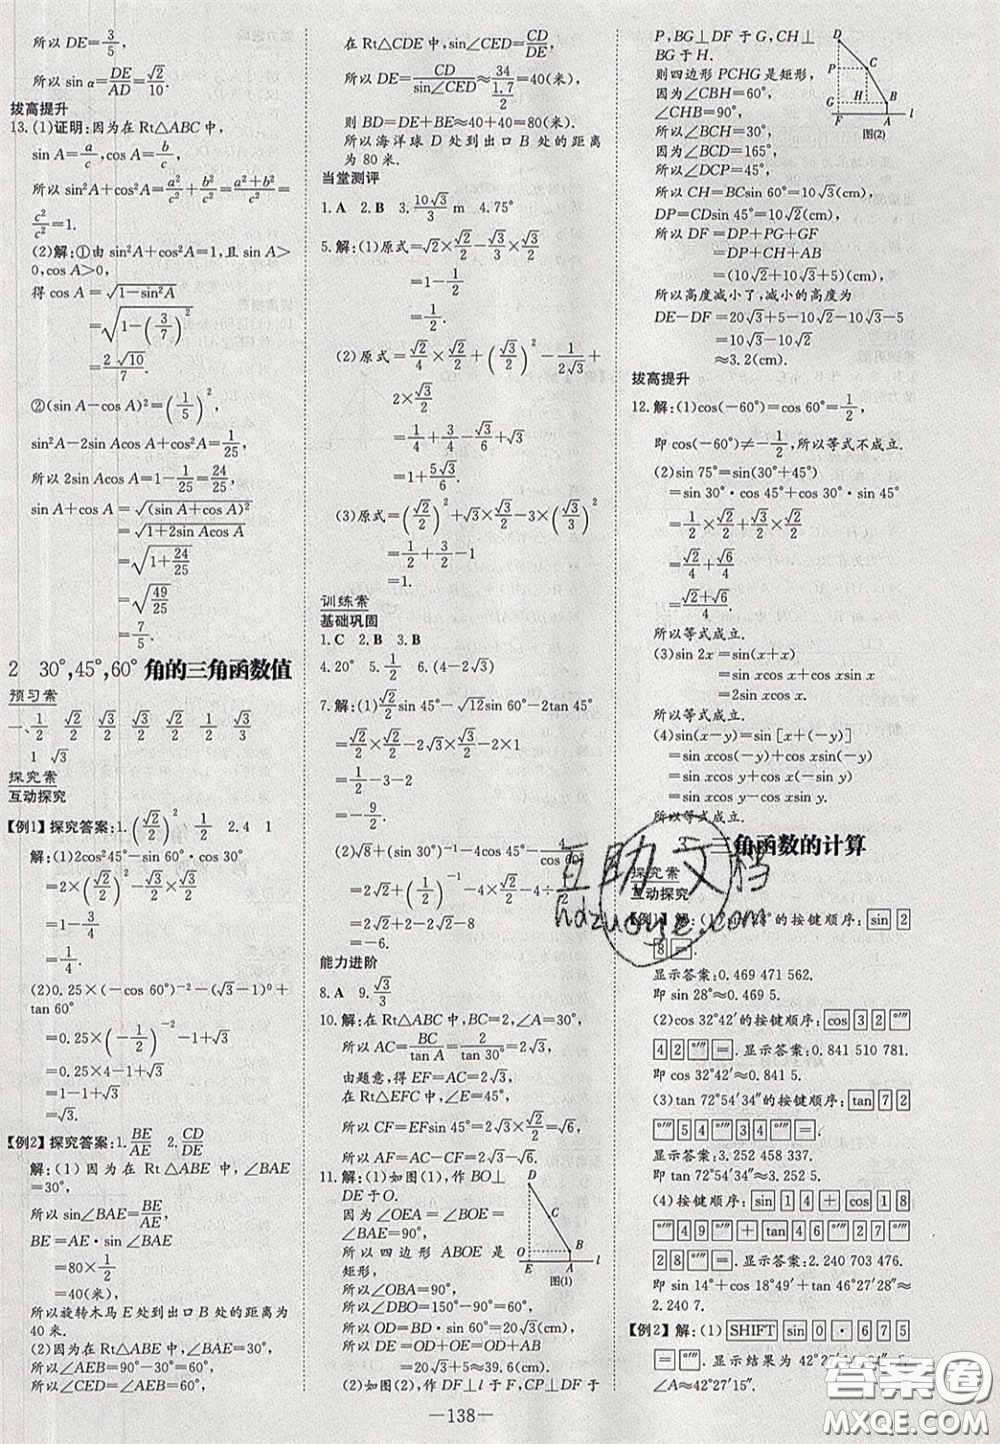 所以 DE=3/5,
所以 sin α=DE/AD=√2/10.
拔高提升
13.(1)证明:因为在 Rt△ABC 中,
sin A=a/c,cos A=b/c,
所以 sin²A+cos²A=a²/c²+b²/c²=(a²+b²)/c²=
c²/c²=1.
(2)解:①由 sin²A+cos²A=1,且 sin A>
0,cos A>0,
得 cos A=√(1-sin²A)
=√(1-(3/7)²)
=2√10/7.
②(sin A-cos A)²=(1/5)²,
sin²A-2sin Acos A+cos²A=1/25,
所以 2sin Acos A=1-1/25=24/25,
sin A+cos A=√((sin A+cos A)²)
=√(1+2sin Acos A)
=√(1+24/25)
=√(49/25)
=7/5.
2 30°,45°,60°角的三角函数值
预习案
一、1/2 √2/2 √3/2 √3/2 √2/2 1/2 √3/3
1 √3
探究案
互动探究
【例1】探究答案:1.(√2/2)² 1/2 2.4 1
解:(1)2cos²45°-sin 60°·cos 30°
=2×(√2/2)²-√3/2×√3/2
=1-3/4
=1/4.
(2)0.25×(-cos 60°)⁻²-(√3-1)⁰+
tan 60°
=0.25×(-1/2)⁻²-1+√3
=0.25×4-1+√3
=1-1+√3
=√3.
【例2】探究答案:1.BE/AE 2.CD/DE
解:(1)因为在 Rt△ABE 中,∠BAE
=30°,
所以 sin∠BAE=BE/AE,
BE=AE·sin∠BAE
=80×1/2
=40(米),
所以旋转木马 E 处到出口 B 处的距离为
40 米.
(2)因为在 Rt△ABE 中,∠BAE=30°,
所以∠AEB=90°-30°=60°,
所以∠CED=∠AEB=60°,
在 Rt△CDE 中,sin∠CED=CD/DE,
所以 DE=CD/sin∠CED≈34/(1.7/2)=40(米),
则 BD=DE+BE≈40+40=80(米).
所以海洋球 D 处到出口 B 处的距离
为 80 米.
当堂测评
1.A 2.B 3.10√3/3 m 4.75°
5.解:(1)原式=√2×√2/2-√3/3×√3/2
=1-1/2
=1/2.
(2)原式=√2/4×√2/2+(√3/2)²-1/(2√3)+
2×√3/2
=1/4+3/4-√3/6+√3
=1+5√3/6.
(3)原式=(√2/2)²+√3×√3/2-3×(√3/3)²
=1/2+3/2-1
=1.
训练案
基础巩固
1.C 2.B 3.B
4.20° 5.1/2 6.(4-2√3)
7.解:(1)√2/2 sin 45°-√12sin 60°-2tan 45°
=√2/2×√2/2-2√3×√3/2-2×1
=1/2-3-2
=-9/2.
(2)√8+(sin 30°)⁻¹-4cos 45°-4/cos 60°
=2√2+(1/2)⁻¹-4×√2/2-4÷1/2
=2√2+2-2√2-8
=-6.
能力进阶
8.A 9.√3/3
10.解:在 Rt△ABC 中,BC=2,∠A=30°,
所以 AC=BC/tan A=2/tan 30°=2√3,
由题意,得 EF=AC=2√3,
在 Rt△EFC 中,∠E=45°,
所以 CF=EFsin 45°=2√3×√2/2=√6,
所以 AF=AC-CF=2√3-√6.
11.解:(1)如图(1),作 BO⊥
DE 于 O.
因为∠OEA=∠BOE
=∠BAE=90°,
所以四边形 ABOE 是
矩形,
所以∠OBA=90°,
所以∠DBO=150°-90°=60°,
所以 OD=BD·sin 60°=20√3(cm),
所以 DE=OD+OE=OD+AB
=20√3+5≈39.6(cm).
(2)如图(2),作 DF⊥l 于 F,CP⊥DF 于
D
C
O
B
E
A
l
图(1)
P,BG⊥DF 于 G,CH⊥
BG 于 H.
则四边形 PCHG 是矩形,
因为∠CBH=60°,
∠CHB=90°,
所以∠BCH=30°,
因为∠BCD=165°,
所以∠DCP=45°,
所以 CH=BCsin 60°=10√3(cm),
DP=CDsin 45°=10√2(cm),
所以 DF=DP+PG+GF
=DP+CH+AB
=(10√2+10√3+5)(cm),
所以高度减小了,减小的高度为
DE-DF=20√3+5-10√2-10√3-5
=10√3-10√2
≈3.2(cm).
D
P
C
G
H
B
F
A
l
图(2)
拔高提升
12.解:(1)cos(-60°)=cos 60°=1/2,
即 cos(-60°)≠-1/2,所以等式不成立.
(2)sin 75°=sin(30°+45°)
=sin 30°·cos 45°+cos 30°·sin 45°
=1/2×√2/2+√3/2×√2/2
=√2/4+√6/4
=(√2+√6)/4.
所以等式成立.
(3)sin 2x=sin(x+x)
=sin xcos x+cos xsin x
=2sin xcos x.
所以等式成立.
(4)sin(x-y)=sin [x+(-y)]
=sin xcos(-y)+cos xsin(-y)
=sin xcos y-cos xsin y.
所以等式成立.
三角函数的计算
探究案
互动探究
【例1】解:(1)sin 28°的按键顺序:sin 2
8 =.
显示答案:0.469 471 562.
即 sin 28°≈0.469 5.
(2)cos 32°42′的按键顺序:cos 3 2 °′″
4 2 °′″ =.显示答案:0.841 510 781.
即 cos 32°42′≈0.841 5.
(3)tan 72°54′34″的按键顺序:tan 7 2
°′″ 5 4 °′″ 3 4 °′″ =.
显示答案:3.252 458 337.
即 tan 72°54′34″≈3.252 5.
(4)按键顺序:sin 1 4 + cos 1 8
°′″ 4 9 °′″ + tan 4 6 °′″ 2 7 °′″
2 8 °′″ =.显示答案:2.240 703 476.
即 sin 14°+cos 18°49′+tan 46°27′28″≈
2.240 7.
【例2】解:(1) SHIFT sin 0 · 6 7 5
=.显示结果为 42°27′
∠A=42°27′15″.
—138—
互助文档
hdzuoye.com
答案圈
MXQE.COM